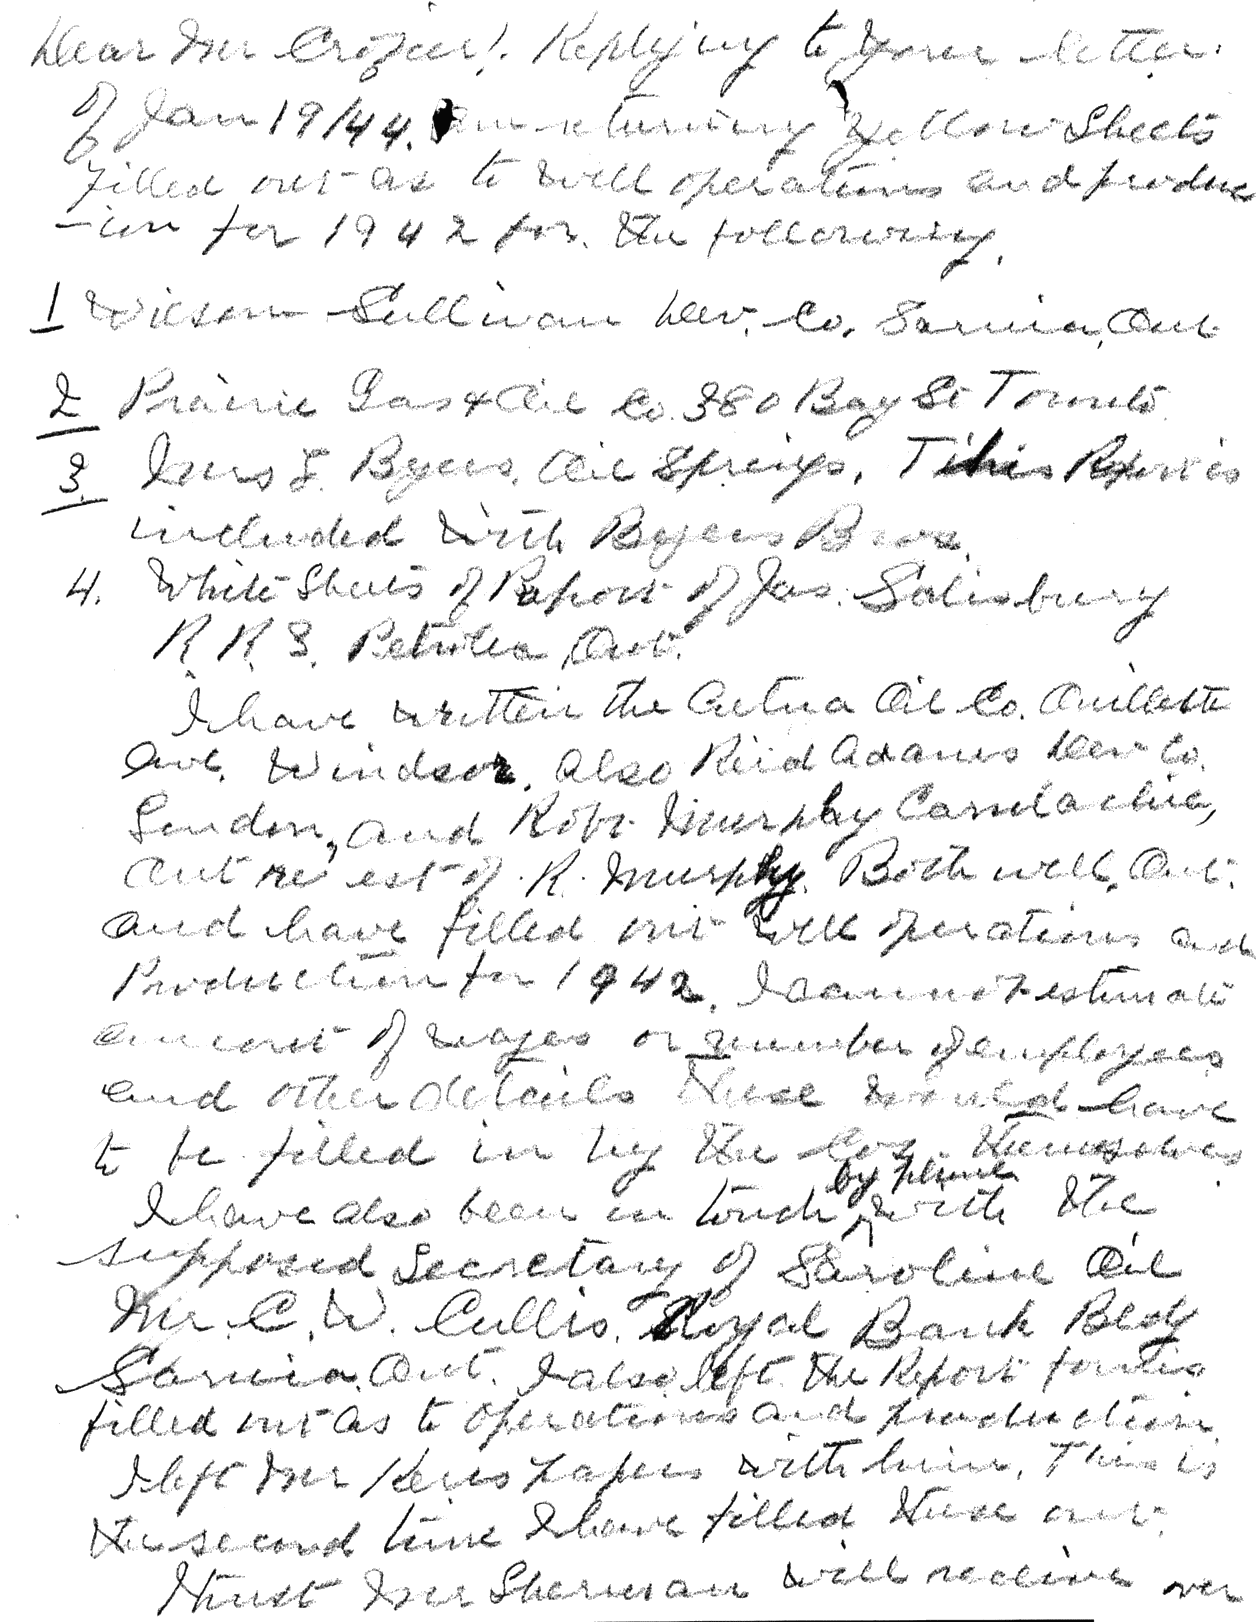 Dear Mr Crozier!. Replying to your letter.
of Jan 19/44. Am returning yellow Sheets
filled out as to well operations and produc
-ion for 1942 for. the following.
1 Wilson Sullivan Dev. Co. Sarnia, Ont
2 Prairie Gas & Oil Co. 380 Bay St Toronto
3. Mrs F. Byers, Oil Springs. This Report is
included with Byers Bros.
4. White Sheets of Report of Jas. Salisbury
R. R. 3. Petrolia, Ont.
I have written the Aetna Oil Co. Ouillette
Ave. Windsor, also Reid Adams Dev Co.
London, and Robt Murphy Camlachie,
Ont re est of R. Murphy. Bothwell, Ont.
and have filled out well operations and
Production for 1942. I cannot estimate
amount of wages or number of employees
and other details these would have
to be filled in by the Cos. themselves
I have also been in touch by phone with the
supposed Secretary of Saroline Oil
Mr. C. W. Cullis. Royal Bank Bldg
Sarnia. Ont. I also left the Report forms
filled out as to operations and production
I left Mr Kerrs papers with him. This is
the second time I have filled these out.
I trust Mr Sherman will receive over